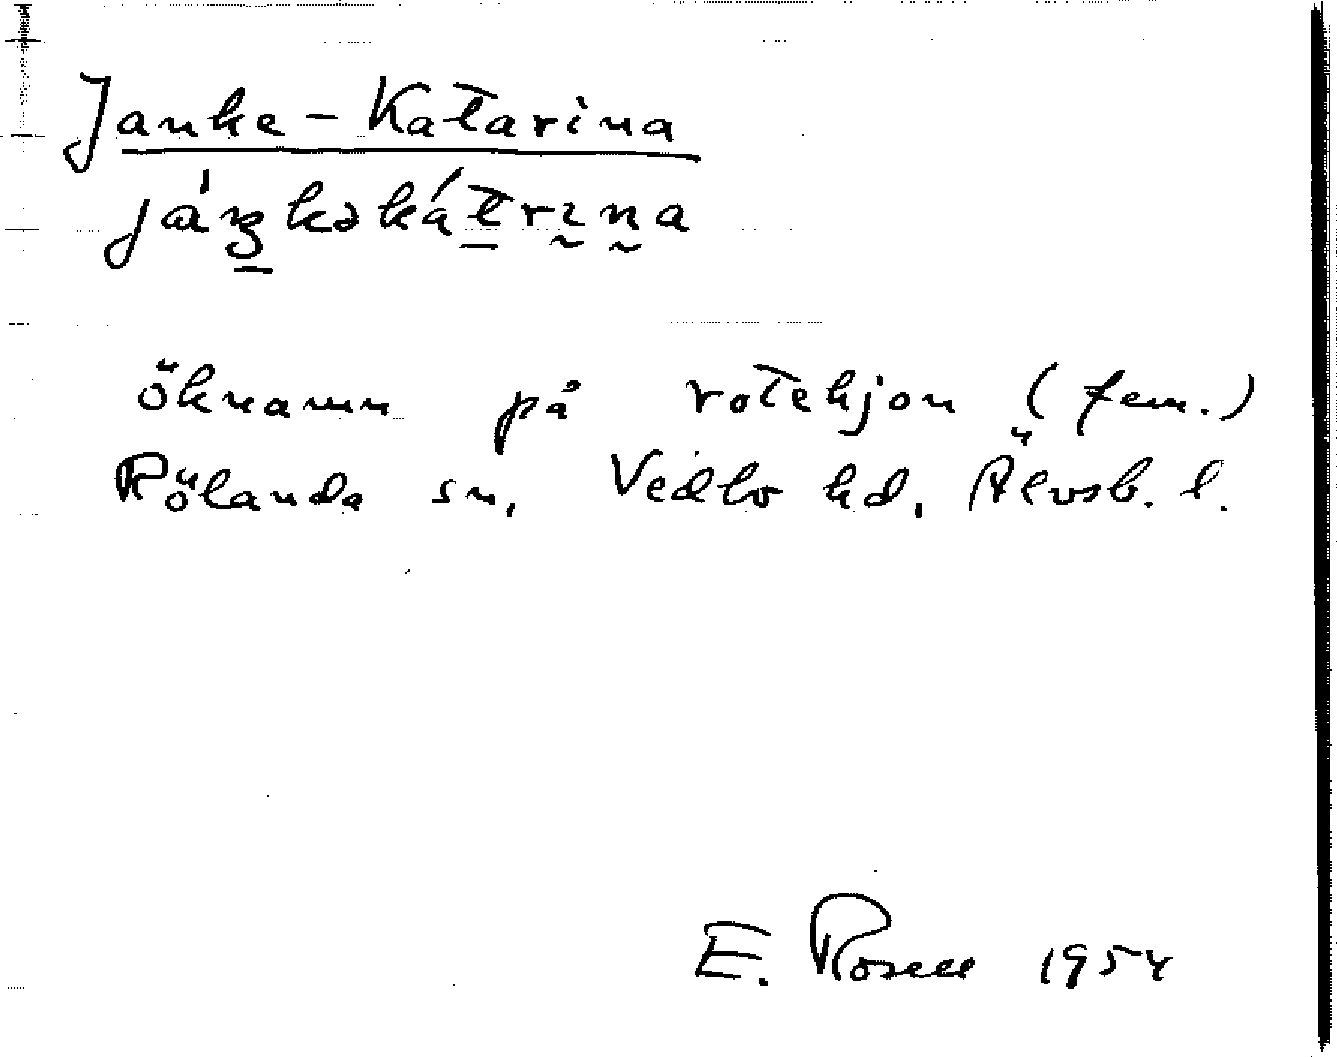 Janke-Katarina
já̱ŋkəká̱trɩ̰n̰a
öknamn på rotehjon (fem.)
Rölanda sn, Vedbo hd, Älvsb. l.
E. Rosell 1954